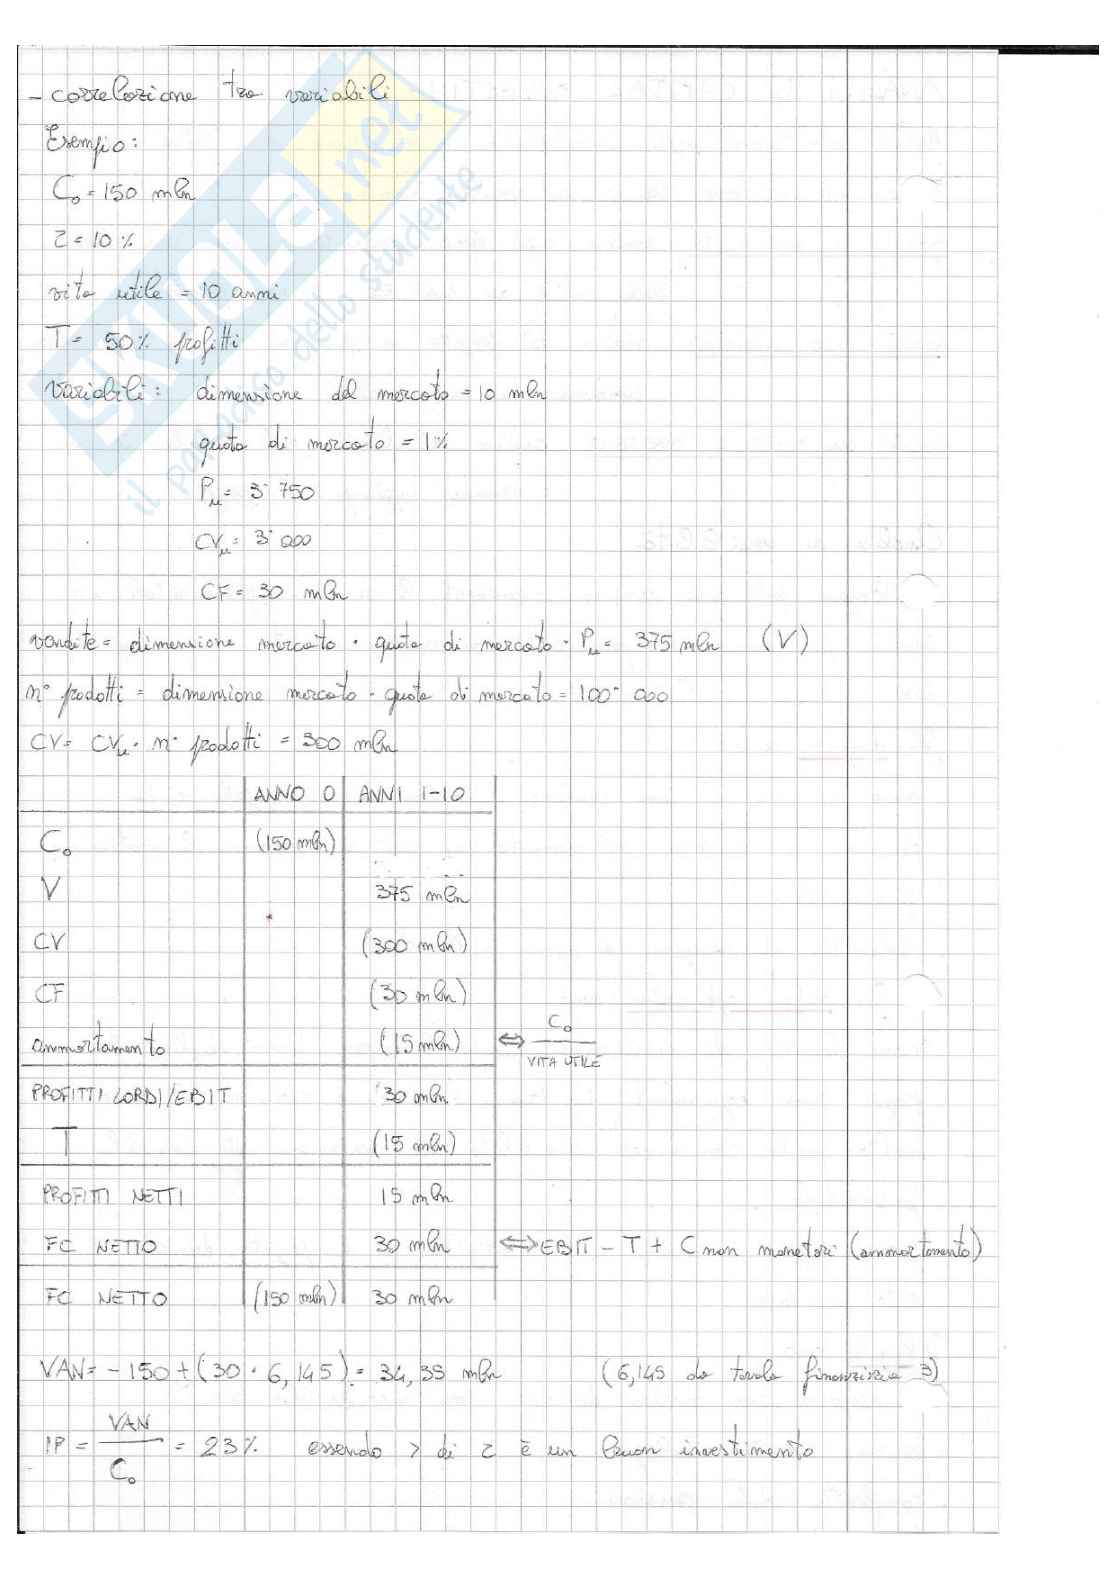 - correlazione tra variabili
Esempio:
C₀ = 150 mln
r = 10 %
vita utile = 10 anni
T = 50% profitti
variabili: dimensione del mercato = 10 mln
quota di mercato = 1%
Pμ = 3˙750
CVμ = 3˙000
CF = 30 mln
vendite = dimensione mercato · quota di mercato · Pμ = 375 mln (V)
n° prodotti = dimensione mercato · quota di mercato = 100˙000
CV = CVμ · n° prodotti = 300 mln
ANNO 0 ANNI 1-10
C₀ (150 mln)
V 375 mln
CV (300 mln)
CF (30 mln)
ammortamento (15 mln) ⇔ C₀ / VITA UTILE
PROFITTI LORDI/EBIT 30 mln
T (15 mln)
PROFITTI NETTI 15 mln
FC NETTO 30 mln ⇔ EBIT - T + C non monetari (ammortamento)
FC NETTO (150 mln) 30 mln
VAN = -150 + (30 · 6,145) = 34,35 mln (6,145 da tavola finanziaria 3)
IP = VAN / C₀ = 23% essendo > di r è un buon investimento
SKUOLA.net
il paradiso dello studente